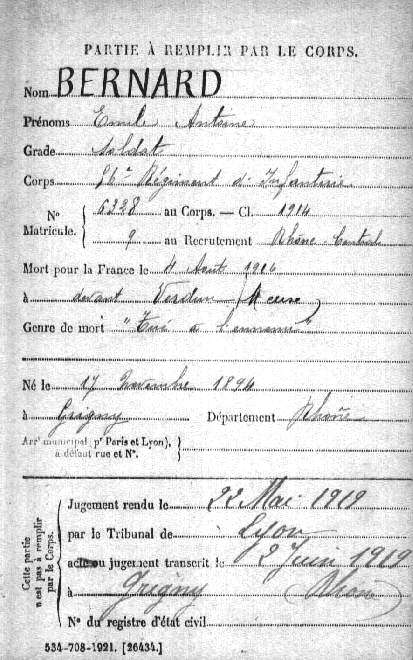 PARTIE À REMPLIR PAR LE CORPS.
Nom BERNARD
Prénoms Emile Antoine
Grade soldat
Corps 96e Régiment d'Infanterie
N° Matricule. { 6328 au Corps. — Cl. 1914
9 au Recrutement Rhône Central
Mort pour la France le 4 Août 1916
à devant Verdun (Meuse)
Genre de mort "Tué à l'ennemi"
Né le 17 Novembre 1894
à Grigny Département Rhône
Arrt municipal (pr Paris et Lyon), à défaut rue et N°. }
Cette partie n'est pas à remplir par le Corps.
Jugement rendu le 22 Mai 1919
par le Tribunal de Lyon
acte ou jugement transcrit le 2 Juin 1919
à Grigny (Rhône)
N° du registre d'état civil
534-708-1921. [26434.]